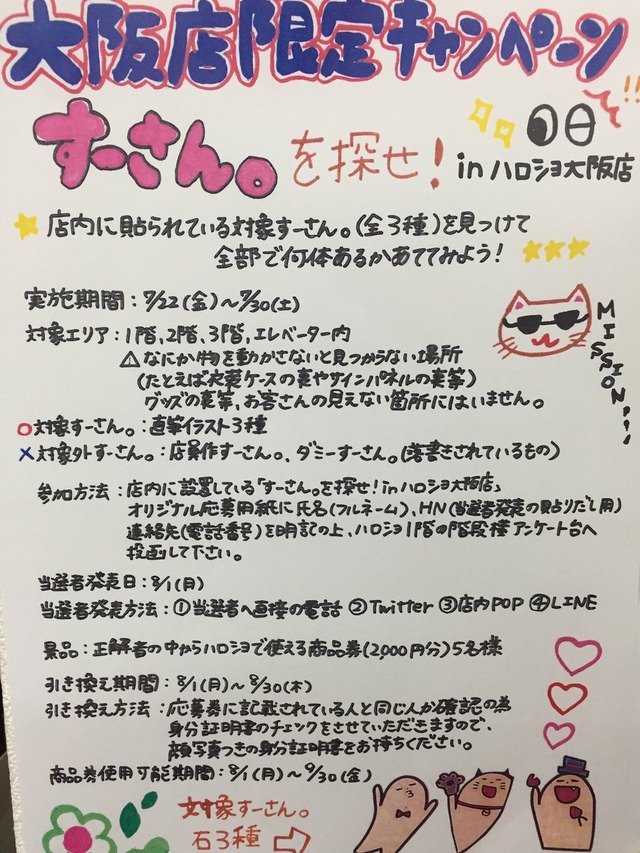 大阪店限定キャンペーン
すーさん。を探せ! in ハロショ大阪店
!!
店内に貼られている対象すーさん。(全3種)を見つけて
全部で何体あるかあててみよう!
実施期間:7/22(金)~7/30(土)
対象エリア:1階,2階,3階,エレベーター内
△なにか物を動かさないと見つからない場所
(たとえば衣裳ケースの裏やサインパネルの裏等)
グッズの裏等,お客さんの見えない箇所にはいません。
MISSION!!!
○対象すーさん。:直筆イラスト3種
×対象外すーさん。:店員作すーさん。、ダミーすーさん。(落書きされているもの)
参加方法:店内に設置している「すーさん。を探せ!inハロショ大阪店」
オリジナル応募用紙に氏名(フルネーム)、HN(当選者発表の貼りだし用)
連絡先(電話番号)を明記の上、ハロショ1階の階段横アンケート台へ
投函して下さい。
当選者発表日:8/1(月)
当選者発表方法:①当選者へ直接の電話 ②Twitter ③店内POP ④LINE
景品:正解者の中からハロショで使える商品券(2,000円分)5名様
引き換え期間:8/1(月)~8/30(木)
引き換え方法:応募券に記載されている人と同じ人か確認の為
身分証明書のチェックをさせていただきますので、
顔写真つきの身分証明書をお持ちください。
商品券使用可能期間:8/1(月)~9/30(金)
対象すーさん。
右3種